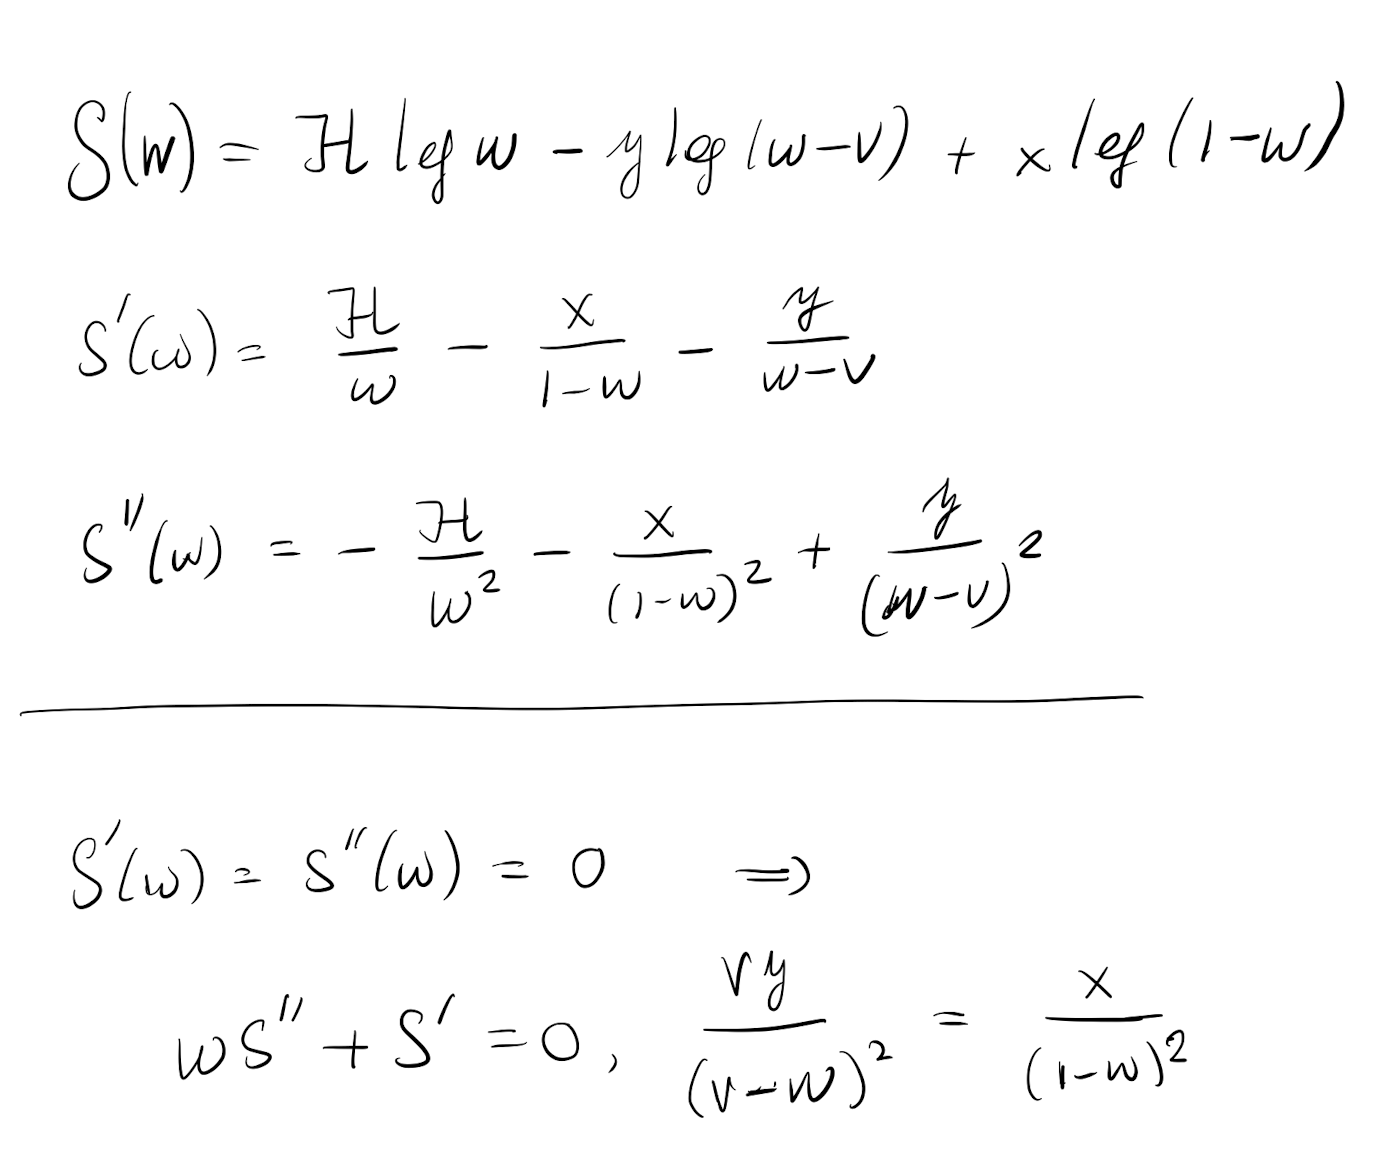 S(w) = ℋ log w − y log (w−v) + x log (1−w)
S′(w) = ℋ/w − x/(1−w) − y/(w−v)
S″(w) = − ℋ/w² − x/(1−w)² + y/(w−v)²
S′(w) = S″(w) = 0 ⇒
wS″ + S′ = 0, vy/(v−w)² = x/(1−w)²